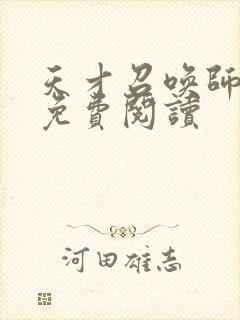 天才召喚師
免費閱讀
河田雄志